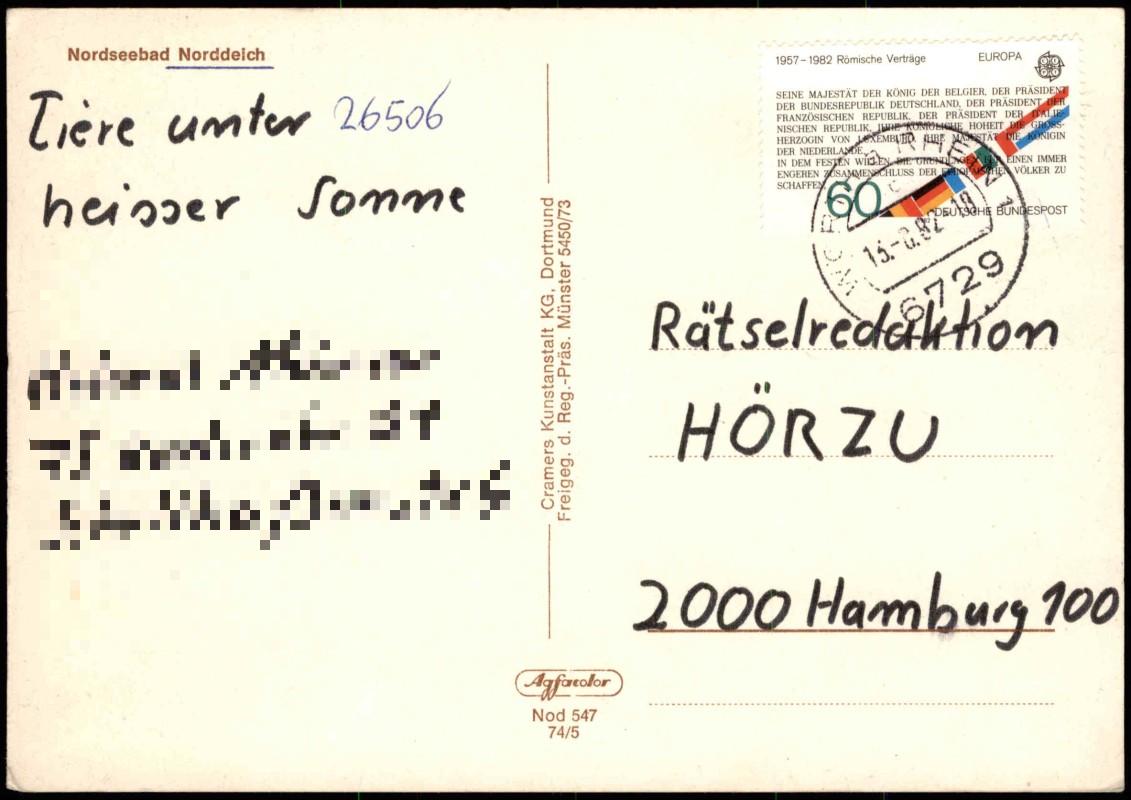 Nordseebad Norddeich
Tiere unter 26506
heisser Sonne
Cramers Kunstanstalt KG, Dortmund
Freigeg. d. Reg.-Präs. Münster 5450/73
1957–1982 Römische Verträge EUROPA
SEINE MAJESTÄT DER KÖNIG DER BELGIER, DER PRÄSIDENT
DER BUNDESREPUBLIK DEUTSCHLAND, DER PRÄSIDENT DER
FRANZÖSISCHEN REPUBLIK, DER PRÄSIDENT DER ITALIE-
NISCHEN REPUBLIK, IHRE KÖNIGLICHE HOHEIT DIE GROSS-
HERZOGIN VON LUXEMBURG, IHRE MAJESTÄT DIE KÖNIGIN
DER NIEDERLANDE,
IN DEM FESTEN WILLEN, DIE GRUNDLAGEN FÜR EINEN IMMER
ENGEREN ZUSAMMENSCHLUSS DER EUROPÄISCHEN VÖLKER ZU
SCHAFFEN,
60
DEUTSCHE BUNDESPOST
RHEIN 1
6729
Rätselredaktion
HÖRZU
2000 Hamburg 100
Agfacolor
Nod 547
74/5